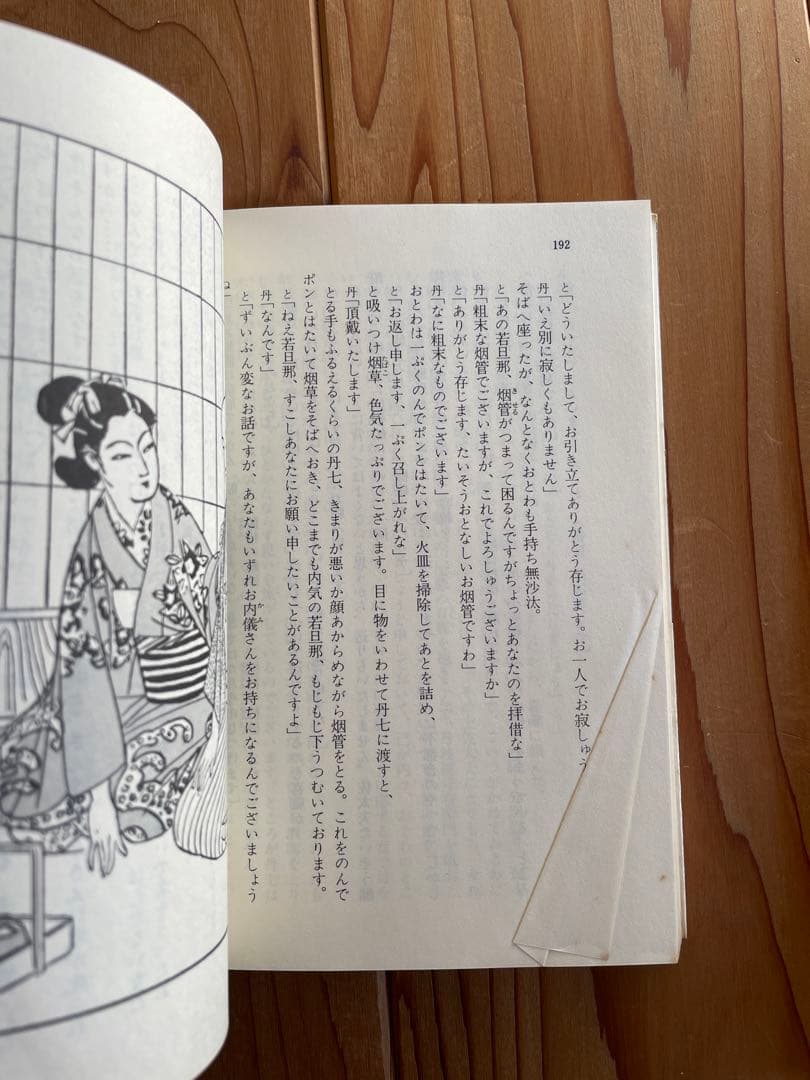 192
と「どういたしまして、お引き立てありがとう存じます。お一人でお寂しゅう
丹「いえ別に寂しくもありません」
そばへ座ったが、なんとなくおとわも手持ち無沙汰。
と「あの若旦那、烟管がつまって困るんですがちょっとあなたのを拝借な」
丹「粗末な烟管でございますが、これでよろしゅうございますか」
と「ありがとう存じます、たいそうおとなしいお烟管ですわ」
丹「なに粗末なものでございます」
おとわは一ぷくのんでポンとはたいて、火皿を掃除してあとを詰め、
と「お返し申します、一ぷく召し上がれな」
と吸いつけ烟草、色気たっぷりでございます。目に物をいわせて丹七に渡すと、
丹「頂戴いたします」
とる手もふるえるくらいの丹七、きまりが悪いか顔あからめながら烟管をとる。これをのんで
ポンとはたいて烟草をそばへおき、どこまでも内気の若旦那、もじもじ下うつむいております。
と「ねえ若旦那、すこしあなたにお願い申したいことがあるんですよ」
丹「なんです」
と「ずいぶん変なお話ですが、あなたもいずれお内儀さんをお持ちになるんでございましょう
ね」